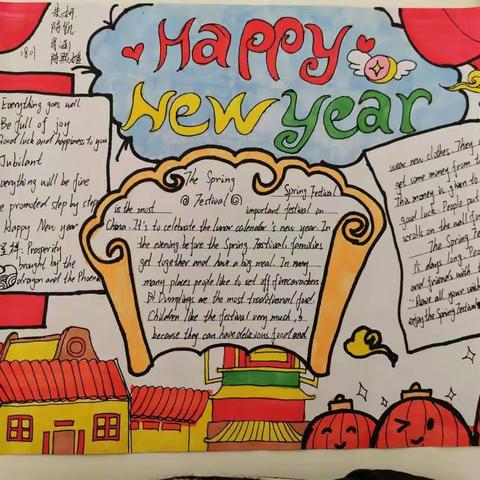 1801
Happy
New Year
Everything goes well
Be full of joy
Good luck and happiness to you
Jubilant
Everything will be fine
Be promoted step by step
Happy New year
Prosperity
brought by the
dragon and the Phoenix
The Spring
Festival
Spring Festival
is the most important festival on
China. It's to celebrate the lunar calendar's new year. In
the evening before the Spring Festival families
get together and have a big meal. In many
many places people like to set off firecrackers
Dumplings are the most traditional food.
Children like the festival very much,
because they can have delicious food and
wear new clothes. They
get some money from
This money is given to
good luck. People put
scrolls on the wall for
The Spring Fe
days long. Peo
and friends with
Have all your wish
enjoy the Spring Festival